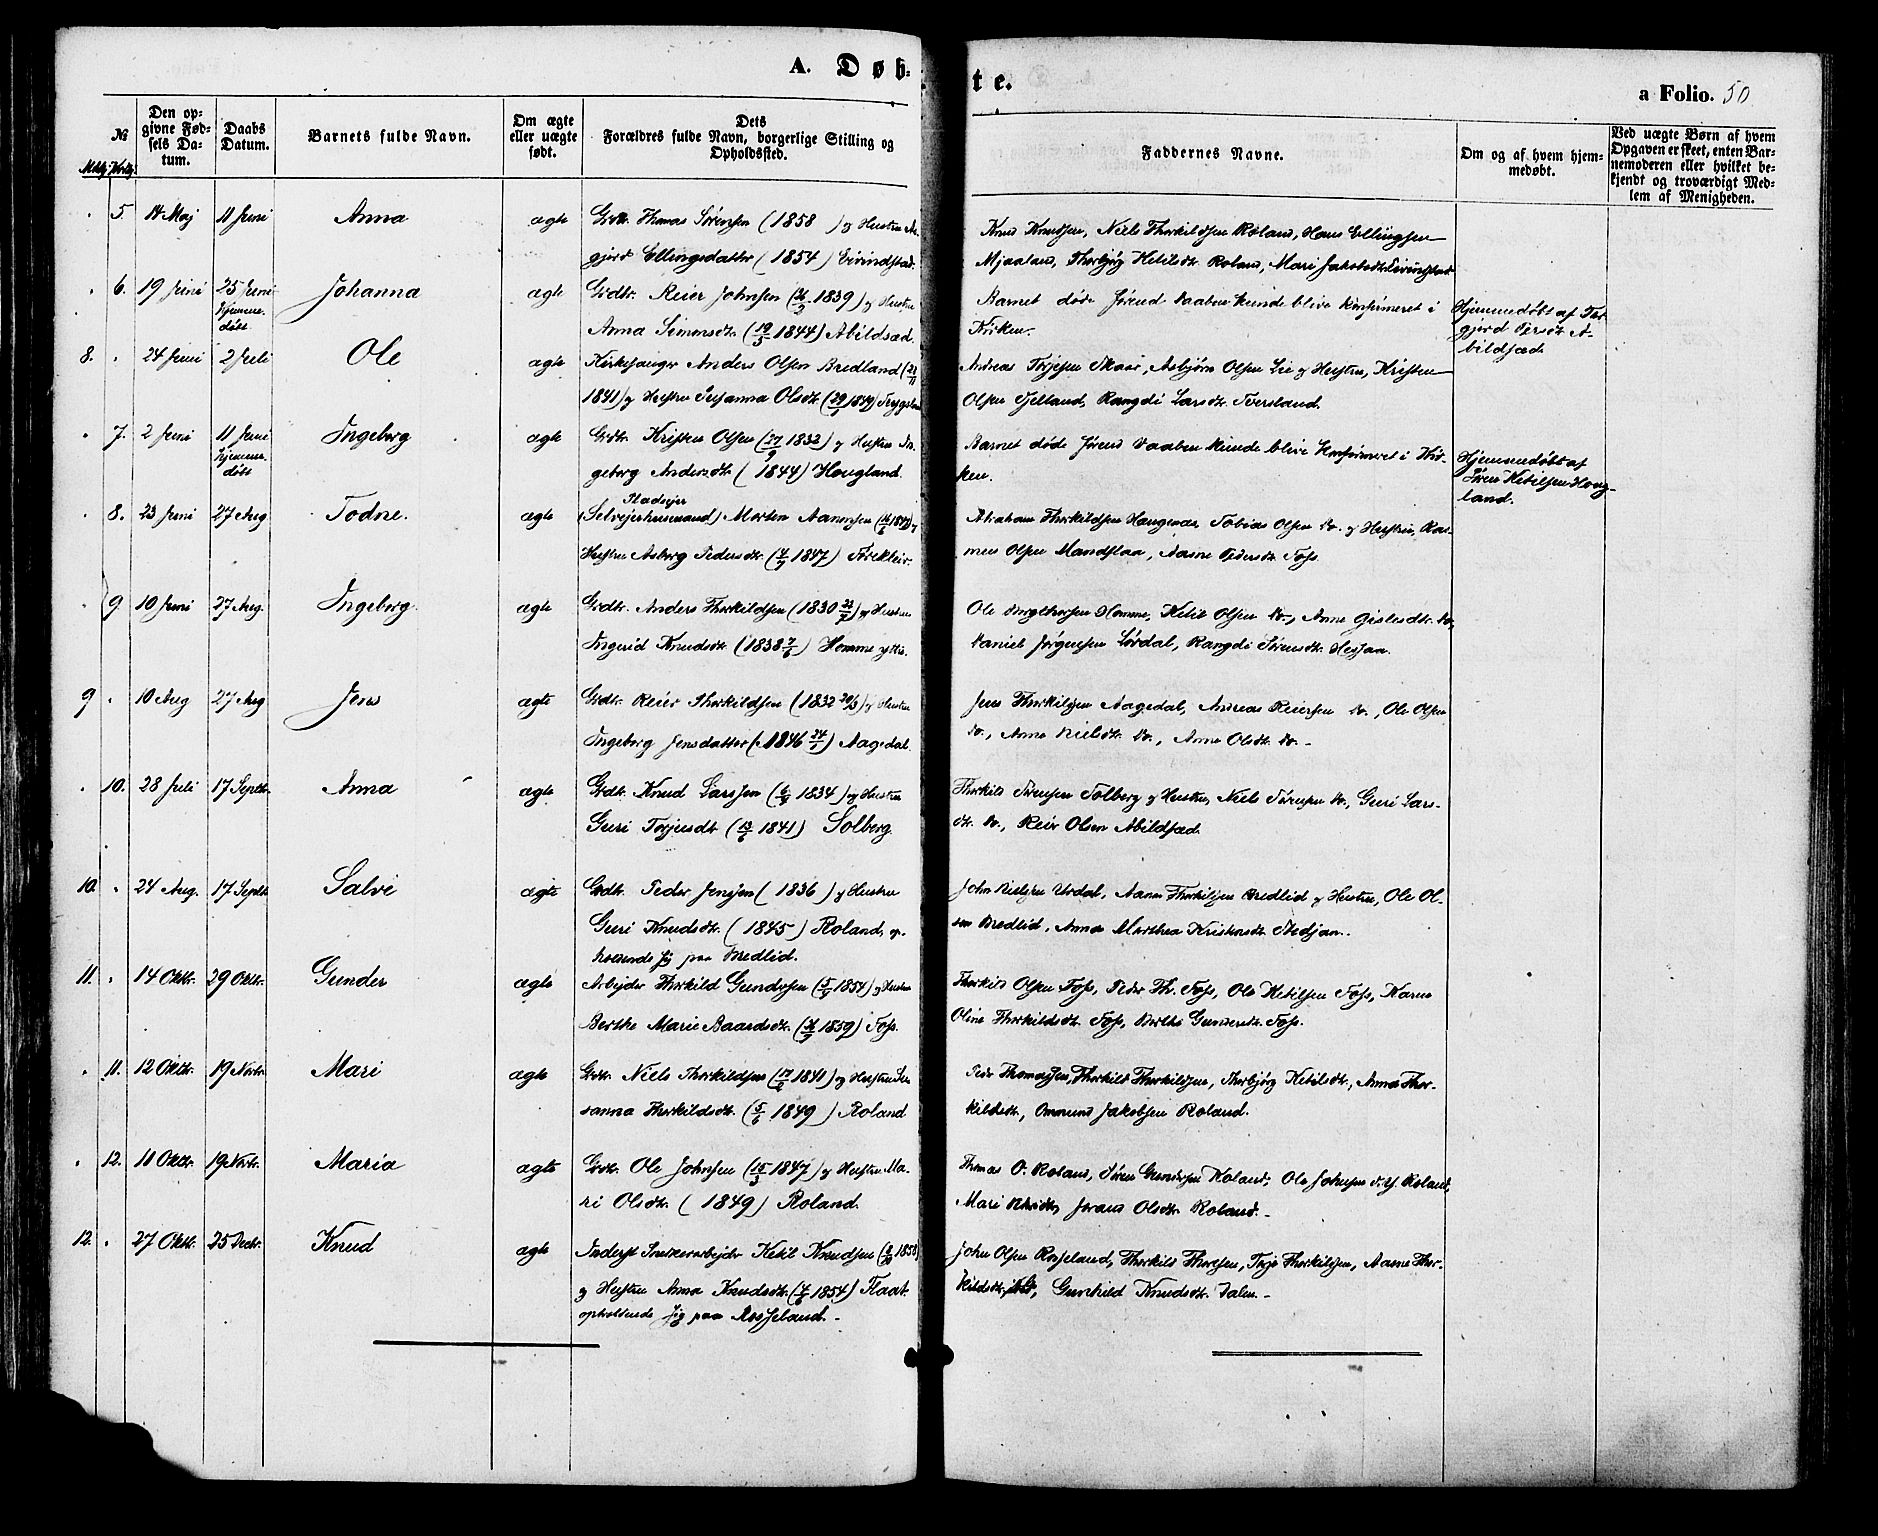 A. Døb-
te.
a Folio. 50
№
Mdkj. Kvdkj.
Den op-
givne Fød-
sels Da-
tum.
Daabs
Datum.
Barnets fulde Navn.
Om ægte
eller uægte
født.
Dets
Forældres fulde Navn, borgerlige Stilling og
Opholdssted.
Faddernes Navne.
Om og af hvem hjem-
medøbt.
Ved uægte Børn af hvem
Opgaven er skeet, enten Bar-
nemoderen eller hvilket be-
kjendt og troværdigt Med-
lem af Menigheden.
5. 14 Maj 11 Juni Anna ægte Grdbr. Thomas Sørensen (1858 ) og Hustru As-
gjerd Ellingsdatter ( 1854) Eivindstad.
Knud Knudsen, Niels Thorkildsen Roland, Hans Ellingsen
Mjaaland, Thorbjørg Ketilsdtr. Roland, Mari Jakobsdtr. Eivindstad
6. 19 Juni 25 Juni Johanna ægte Grdbr. Reier Johnsen (26/3 1839) og Hustru
Hjemme-
døbt.
Anna Simonsdtr. (19/5 1844) Abildsæd.
Barnet døde førend Daaben kunde blive konfirmeret i
Kirken.
Hjemmedøbt af Tor-
gjerd Persdtr. A-
bildsæd.
8. 24 Juni 2 Juli Ole ægte Kirkesanger Anders Olsen Bredland (21/11
1841) og Hustru Susanna Olsdtr. (29/9 1849) Trygsland
Andreas Torjesen Skaar, Asbjørn Olsen Lie og Hustru, Kristen
Olsen Fjelland, Rangdi Larsdtr. Tversland.
7. 2 Juni 11 Juni Ingeborg ægte Grdbr. Kristen Olsen (27/9 1832) og Hustru In-
hjemme-
døbt
geborg Andersdtr. ( 1844) Hougland.
Barnet døde førend Daaben kunde blive konfirmeret i Kir-
ken.
Hjemmedøbt af
Søren Ketilsen Houg-
land.
8. 23 Juni 27 Aug Todne. ægte (Selvejerhusmand) Morten Aanonsen og
Pladsejer
Hustru Asborg Pedersdtr. (4/9 1847)
Abraham Thorkildsen Haugenes, Tobias Olsen Do. og Hustru, Ras-
mus Olsen Mandflaa, Aasne Pedersdtr. Foss.
9. 10 Juni 27 Aug. Ingeborg. ægte Grdbr. Anders Thorkildsen (1830 22/7) og Hustru
Ingerid Knudsdtr. (1838 7/6) Homme ytre.
Ole Bergthorsen Homme, Ketil Olsen Do., Anne Gislesdtr. Do,
Daniel Jørgensen Lørdal, Rangdi Sørensdtr. Hesjaa.
9 10 Aug 27 Aug Jens ægte Grdbr. Reier Thorkildsen (1832 20/3) og Hustru
Ingeborg Jensdatter (1846 24/1) Aagedal.
Jens Thorkildsen Aagedal, Andreas Reiersen Do., Ole Olsen
Do., Anne Nielsdtr. Do., Anne Olsdtr. Do. -
10. 28 Juli 17 Septbr. Anna ægte Grdbr. Knud Larssen (6/9 1834) og Hustru
Guri Torjusdtr. (12/6 1841) Solberg.
Thorkild Sørensen Solberg og Hustru, Niels Sørensen Do., Guri Lars-
dtr. Do., Reier Olsen Abildsæd.
10. 24 Aug. 17 Septbr Salve ægte Grdbr. Peder Jenssen ( 1836 ) og Hustru
Guri Knudsdtr. ( 1845 ) Roland, op-
holdende sig paa Bredlid.
John Nielsen Urdal, Aanon Thorkildsen Bredlid og Hustru, Ole Ol-
sen Bredlid, Anna Marthea Kristensdtr. Stedjan.
11. 14 Oktbr. 29 Oktbr. Gunder ægte Arbejder Thorkild Gundersen (5/9 1854) og Hustru
Berthe Marie Baardsdtr. (26/9 1859) Foss.
Thorkild Olsen Foss, Peder Th. Foss, Ole Ketilsen Foss, Karen
Oline Thorkildsdtr. Foss, Berthe Gundersdtr. Foss.
11. 12 Oktbr. 19 Novbr. Mari ægte Grdbr. Niels Thorkildsen (17/2 1841) og Hustru Su-
sanna Thorkildsdtr. (5/6 1849 ) Roland
Peder Thomassen, Thorkild Thorkildsen, Thorbjørg Ketilsdtr., Anna Thor-
kildsdtr., Ommund Jakobsen Roland.
12. 11 Oktbr. 19 Novbr. Maria ægte Grdbr. Ole Johnsen (15/3 1847) og Hustru Ma-
ri Olsdtr. ( 1849) Roland.
Thomas O. Roland, Søren Gundersen Roland, Ole Johnsen d. y. Roland,
Mari Joraand Olsdtr. Roland. -
12. 27 Oktbr. 25 Decbr. Knud ægte Inderst Snekkerarbejder Ketil Knudsen
og Hustru Anna Knudsdtr. (4/6 1854) Flaat
opholdende sig paa Rosseland. -
John Olsen Rosseland, Thorkild Thorsen, Terje Thorkildsen, Aasne Thor-
kildsdtr. Gunhild Knudsdtr. Dalen. -